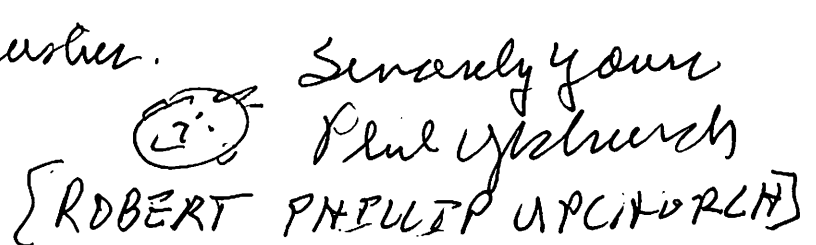 Sincerely yours
Phil Upchurch
[ROBERT PHILLIP UPCHURCH]